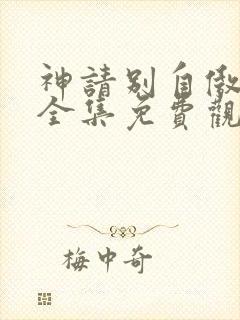 神請別自傲
全集免費觀
梅中奇